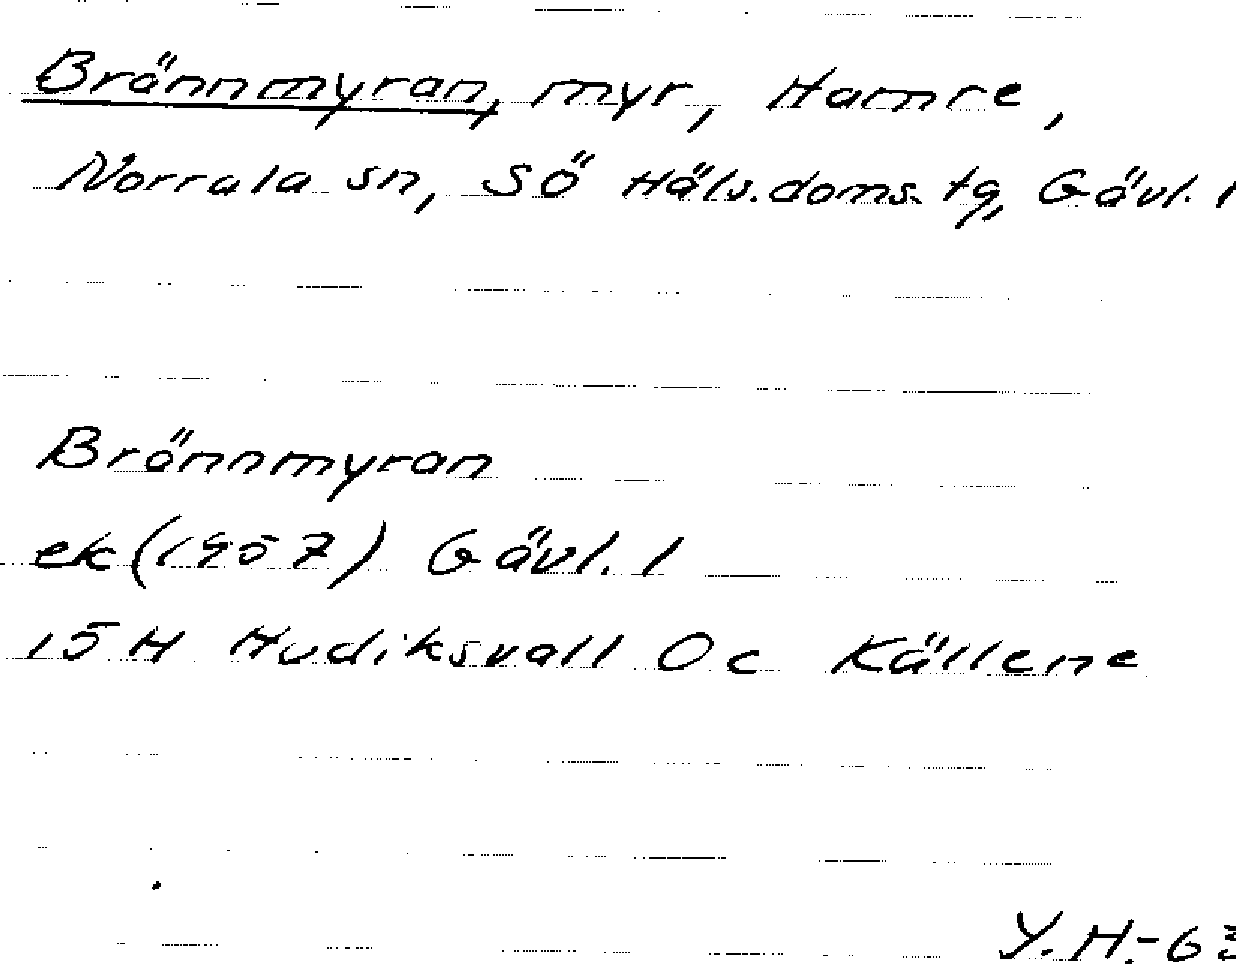 Brännmyran, myr, Hamre,
Norrala sn, SÖ Häls.doms.tg, Gävl. l
Brännmyran
ek (1957) Gävl. l
15 H Hudiksvall Oc Källene
Y.H.-63